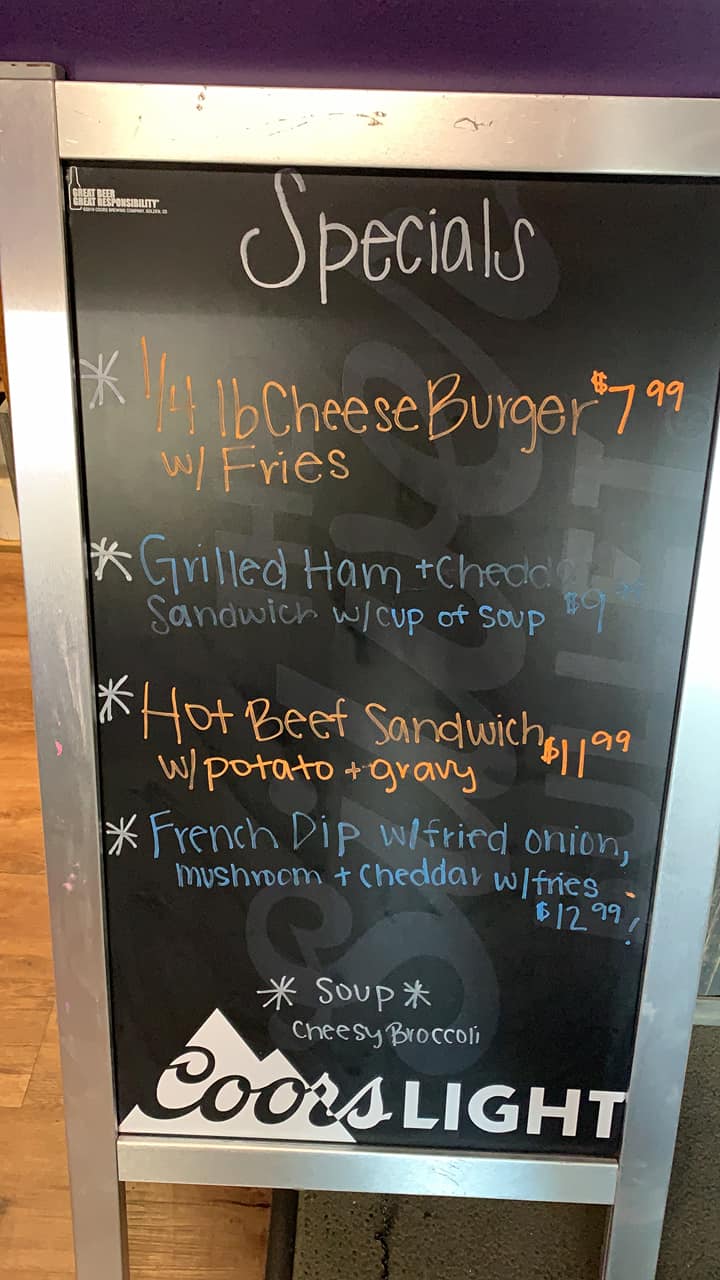 GREAT BEER
GREAT RESPONSIBILITY
Specials
* 1/4 lb Cheese Burger $7 99
w/ Fries
* Grilled Ham +
Sandwich w/cup of soup $9
* Hot Beef Sandwich $11 99
w/ potato + gravy
* French Dip w/fried onion,
mushroom + cheddar w/fries
$12 99!
* Soup *
Cheesy Broccoli
Coors LIGHT